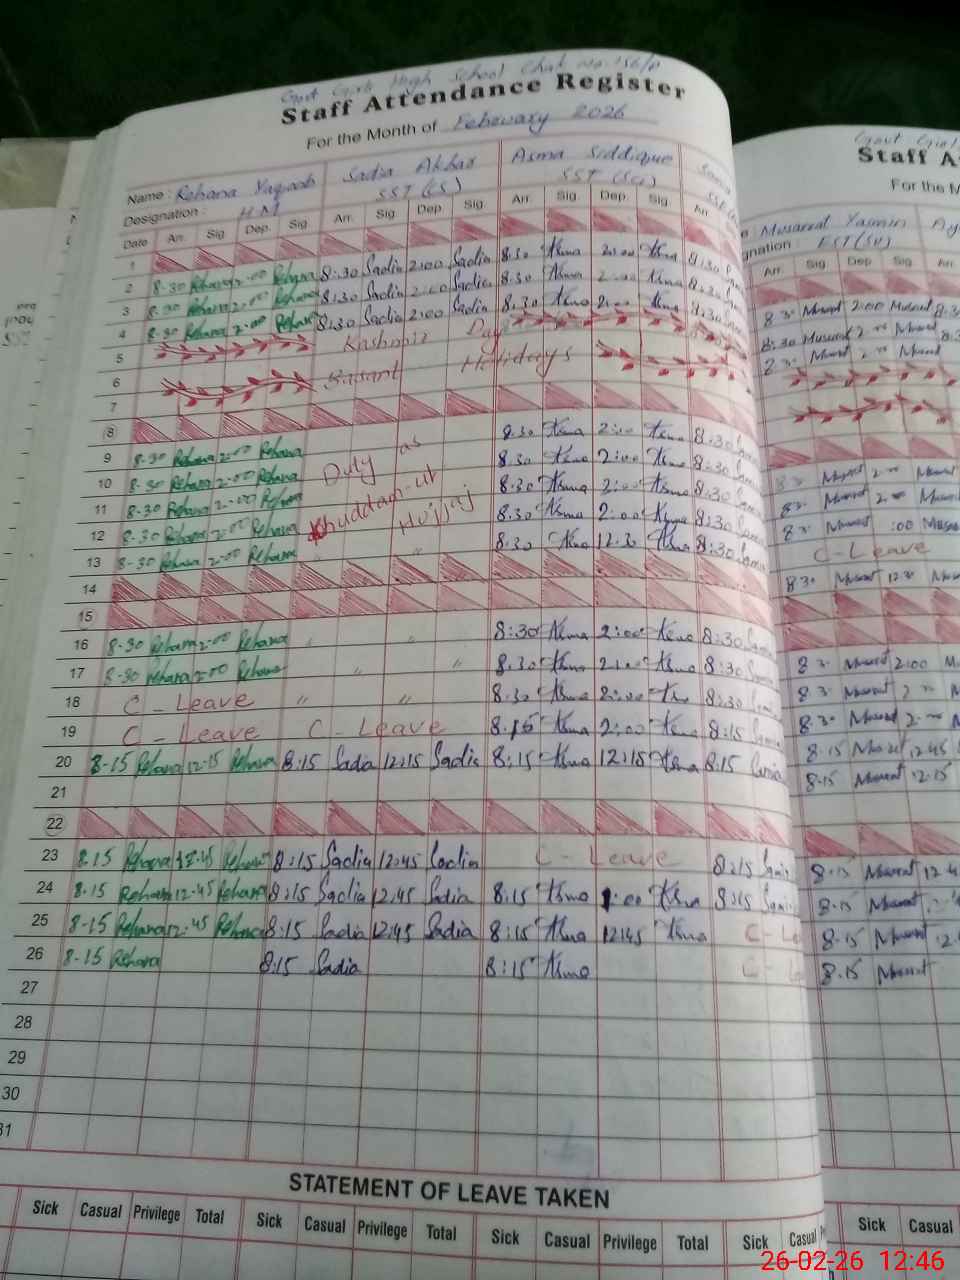 Govt Girls High School Chak No. 156/P
Staff Attendance Register
For the Month of February 2026
Name : Rehana Yaqoob Sadia Akhar Asma Siddique
Designation : H.M SST (CS) SST (Sci)
Date Arr. Sig. Dep. Sig. Arr. Sig. Dep. Sig. Arr. Sig. Dep. Sig. Arr.
1
2 8-30 Rehana 2-00 Rehana 8:30 Sadia 2:00 Sadia 8:30 Asma 2:00 Asma 8:30
3 8-30 Rehana 2-00 Rehana 8:30 Sadia 2:00 Sadia 8:30 Asma 2:00 Asma 8:30
4 8-30 Rehana 2-00 Rehana 8:30 Sadia 2:00 Sadia 8:30 Asma 2:00 Asma 8:30
5 Kashmir Day
6 Basant Holidays
7
8
9 8-30 Rehana 2-00 Rehana Duty as 8:30 Asma 2:00 Asma 8:30
10 8-30 Rehana 2-00 Rehana Khuddam-ul 8:30 Asma 2:00 Asma 8:30
11 8-30 Rehana 2-00 Rehana Hujjaj 8:30 Asma 2:00 Asma 8:30
12 8-30 Rehana 2-00 Rehana 8:30 Asma 2:00 Asma 8:30
13 8-30 Rehana 2-00 Rehana " 8:30 Asma 12:30 Asma 8:30
14
15
16 8-30 Rehana 2-00 Rehana " " 8:30 Asma 2:00 Asma 8:30
17 8-30 Rehana 2-00 Rehana " " 8:30 Asma 2:00 Asma 8:30
18 C - Leave " " 8:30 Asma 2:00 Asma 8:30
19 C - Leave C - Leave 8:15 Asma 2:00 Asma 8:15
20 8-15 Rehana 12-15 Rehana 8:15 Sadia 12:15 Sadia 8:15 Asma 12:15 Asma 8:15
21
22
23 8-15 Rehana 12-45 Rehana 8:15 Sadia 12:45 Sadia C - Leave 8:15
24 8-15 Rehana 12-45 Rehana 8:15 Sadia 12:45 Sadia 8:15 Asma 1:00 Asma 8:15
25 8-15 Rehana 12-45 Rehana 8:15 Sadia 12:45 Sadia 8:15 Asma 12:45 Asma C - Le
26 8-15 Rehana 8:15 Sadia 8:15 Asma C - Le
27
28
29
30
31
STATEMENT OF LEAVE TAKEN
Sick Casual Privilege Total Sick Casual Privilege Total Sick Casual Privilege Total Sick Casual
Staff A
For the M
Musarrat Yasmin
nation : EST(SV)
Arr. Sig. Dep. Sig. Arr.
8:30 Musarrat 2:00 Musarrat
8:30 Musarrat 2:00 Musarrat
8:30 Musarrat 2:00 Musarrat
C - Leave
8:30 Musarrat 12:30
8:30 Musarrat 2:00
8:30 Musarrat 2:00
8:30 Musarrat 2:00
8:15 Musarrat 12:45
8:15 Musarrat 12:15
8:15 Musarrat 12:4
8:15 Musarrat
8:15 Musarrat
8:15 Musarrat
Sick Casual
26-02-26 12:46